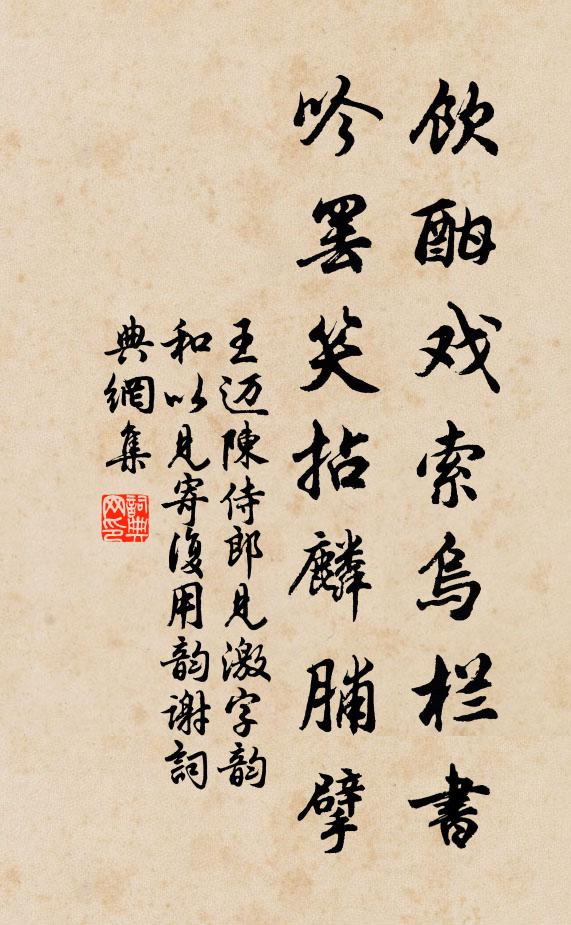 飲酣戏索烏栏書
吟罢笑拈麟脯擘
王迈陳侍郎見激字韵
和以見寄復用韵谢詞
典網集
詞典網印